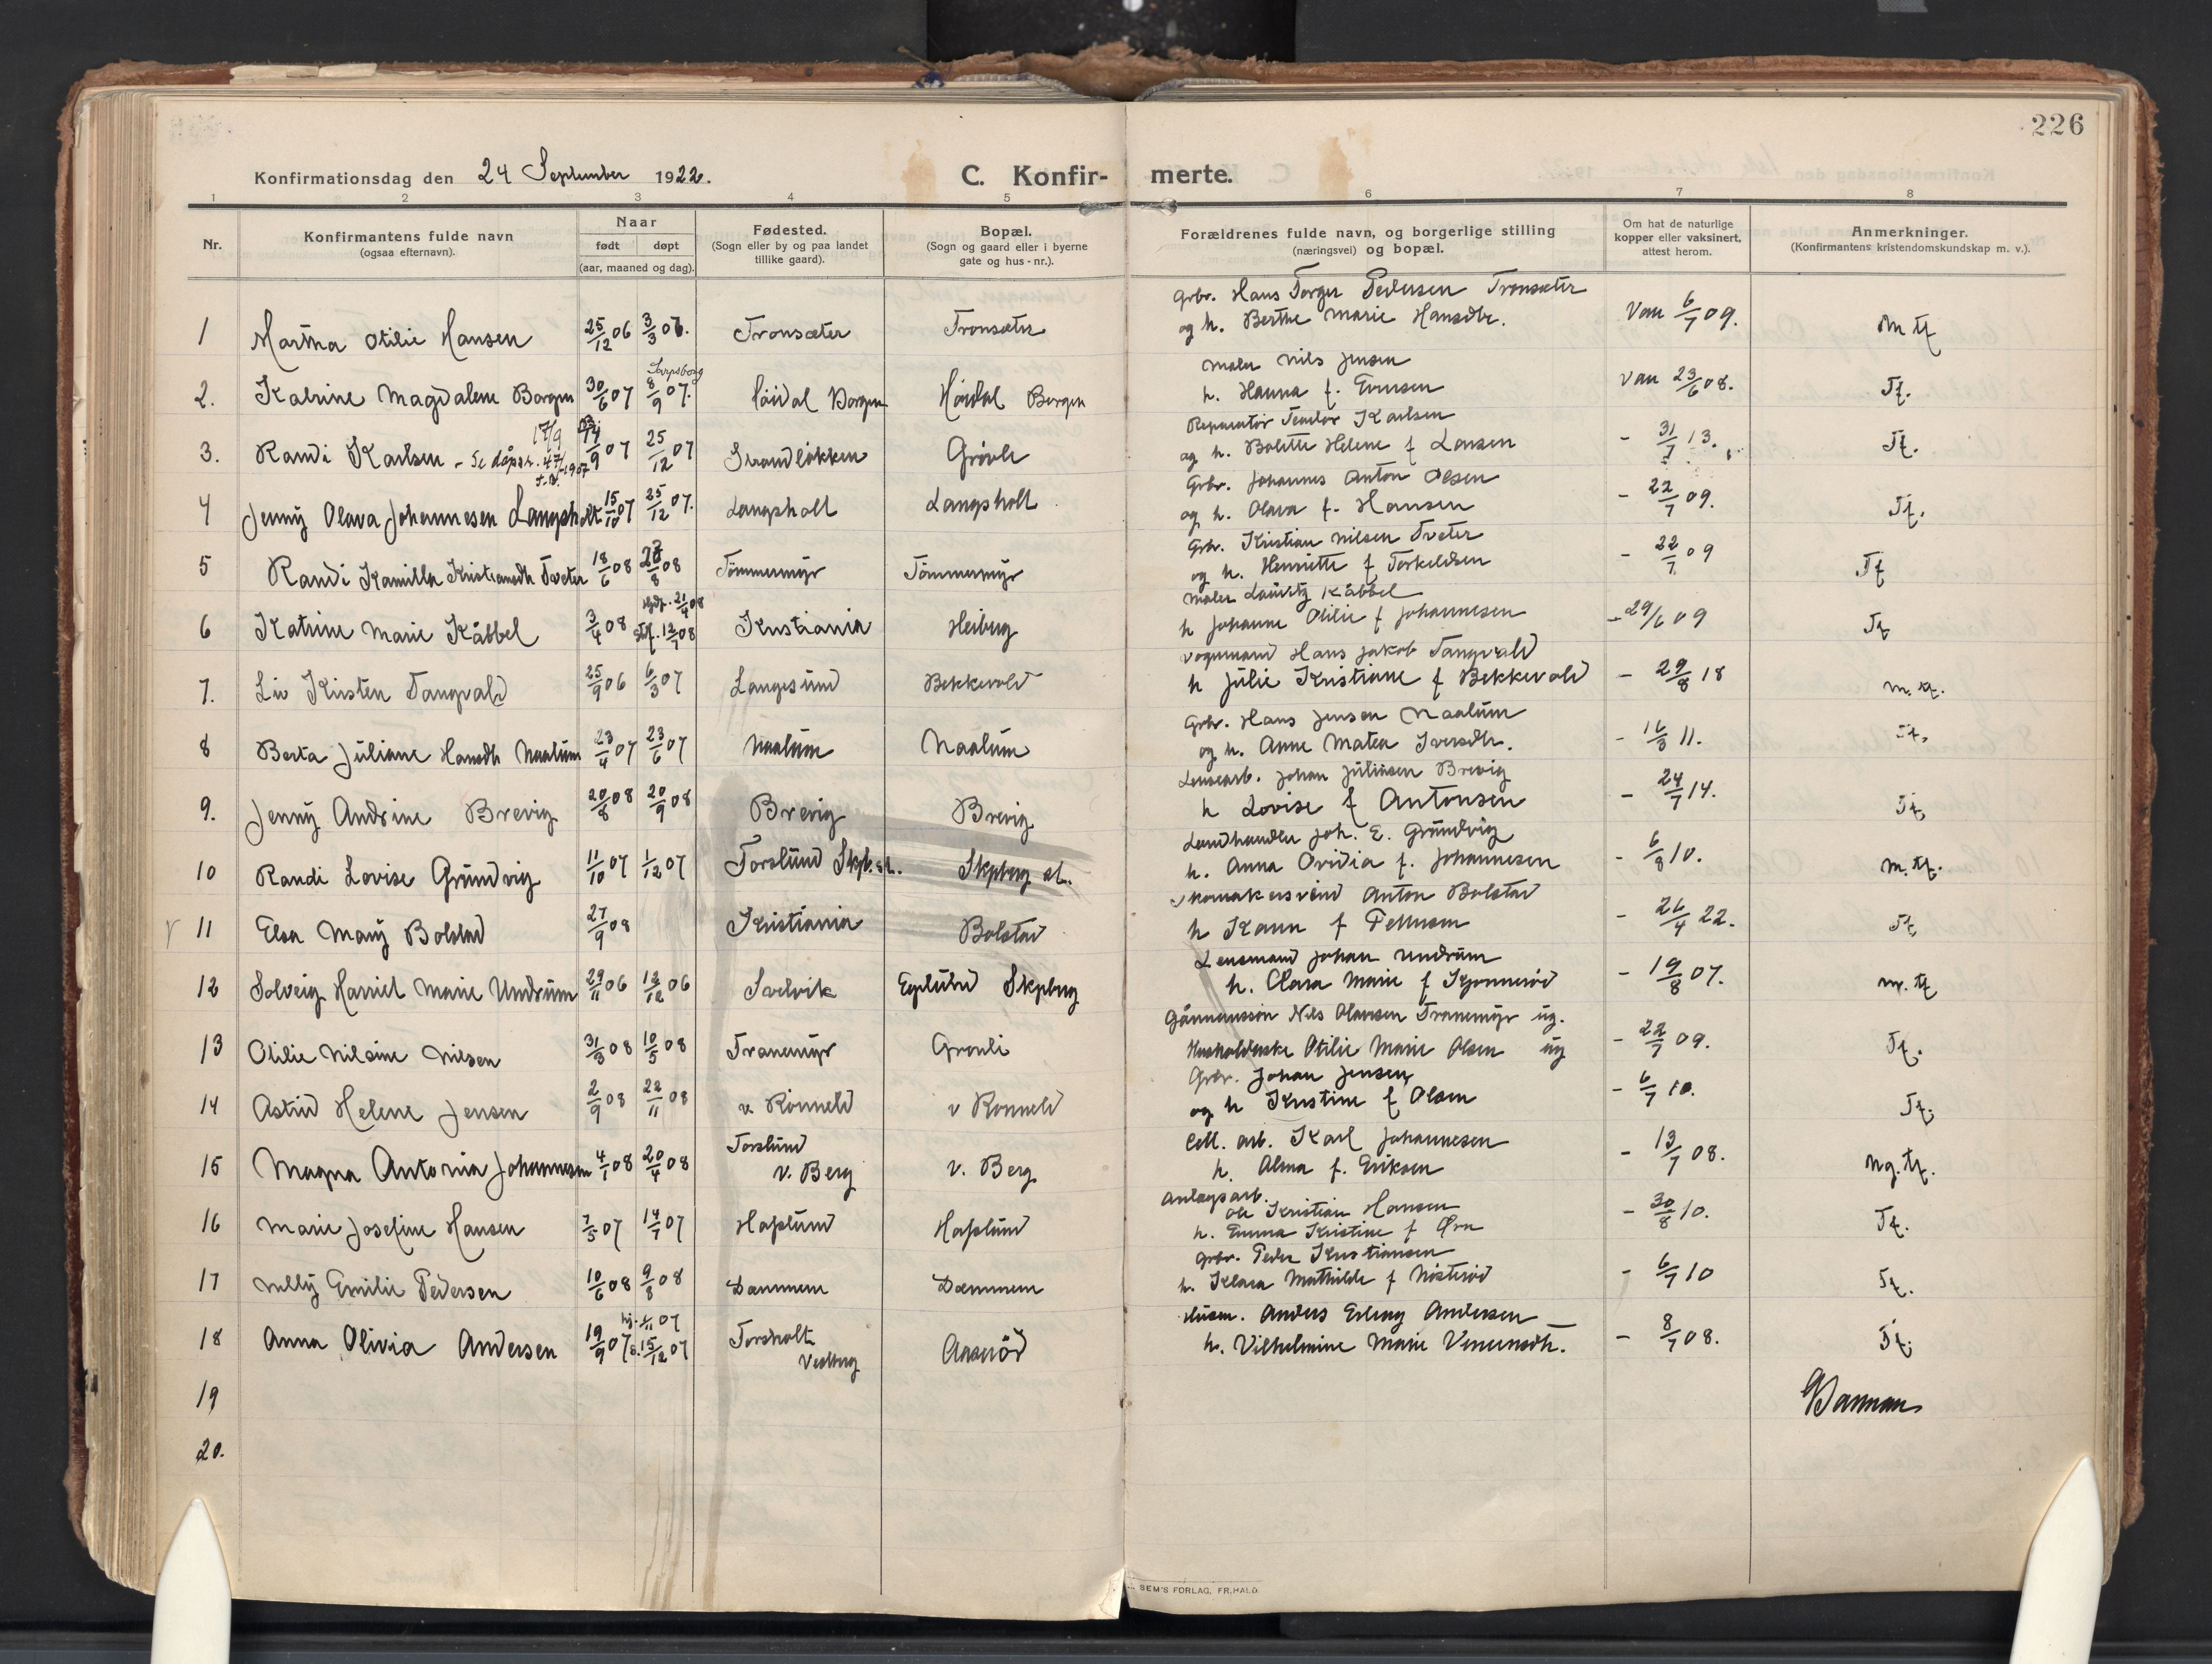 226
Konfirmationsdag den 24 September 1922.
C. Konfirmerte.
1 2 3 4 5 6 7 8
Nr.
Konfirmantens fulde navn
(ogsaa efternavn).
Naar
født døpt
(aar, maaned og dag).
Fødested.
(Sogn eller by og paa landet
tillike gaard).
Bopæl.
(Sogn og gaard eller i byerne
gate og hus-nr.).
Forældrenes fulde navn, og borgerlige stilling
(næringsvei) og bopæl.
Om hat de naturlige
kopper eller vaksinert,
attest herom.
Anmerkninger.
(Konfirmantens kristendomskundskap m. v.).
Grbr. Hans Torger Pedersen Tronsæter
1 Martha Otilie Hansen 25/12 06 3/3 07. Tronsæter Tronsæter og h. Berthe Marie Hansdtr. Vau 6/7 09. M tf
Sarpsborg
Maler Nils Jensen
2. Katrine Magdalene Borgen 30/6 07 8/9 07. Höidal Borgen Höidal Borgen h. Hanna f. Evensen vau 23/6 08. Tf.
Reparatør Teodor Karlsen
3. Randi Karlsen - Se dåpsr. 47/1907 14/9 07 25/12 07 Strandløkken Grövle og h. Bolette Helene f Larsen - 31/7 13. Tf.
Grbr. Johannes Anton Olsen
4 Jenny Olava Johannesen Langsholt 15/10 07 25/12 07. Langsholt Langsholt og h. Olava f. Hansen - 22/7 09. Tf.
Grbr. Kristian Nilsen Tveter
5 Randi Kamilla Kristiansdtr Tveter 18/6 08 23/8 08 Tömmermyr Tömmermyr og h. Henriette f Torkeldsen - 22/7 09 Tf
hjdp. 21/4 08
Maler Lauritz Kåbbel
6 Katrine Marie Kåbbel 3/4 08 stf. 12/7 08 Kristiania Heiberg h Johanne Otilie f Johannesen - 29/6 09 Tf
Vognmand Hans Jakob Tangvald
7. Liv Kirsten Tangvald 25/9 06 6/3 07 Langesund Bekkevold h Julie Kristiane f Bekkevold - 29/8 18 m. tf.
Grbr. Hans Jensen Naalum
8 Berta Juliane Hansdtr Naalum 23/4 07 23/6 07 Naalum Naalum og h. Anne Matea Iversdtr. - 16/3 11. Tf.
Lensearb. Johan Juliusen Brevig
9. Jenny Andrine Brevig 20/8 08 20/9 08 Brevig Brevig h Lovise f Antonsen - 24/7 14. Tf
Landhandler Joh. E. Grundvig
10 Randi Lovise Grundvig 11/10 07 1/12 07 Torslund Skpb. st. Skpberg st. h. Anna Ovidia f. Johannesen - 6/8 10. m. tf.
Skomakersvend Anton Bolstad
11 Elsa Mary Bolstad 27/9 08 Kristiania Bolstad h Karen f Pettersen - 26/4 22. Tf
Lensmand Johan Undrum
12 Solveig Harriet Marie Undrum 29/11 06 12/12 06 Svelvik Eplund Skpberg h. Clara Marie f Kjonnerød - 19/8 07. m. tf
Gårmannssøn Nils Olausen Tranemyr ug.
13 Otilie Nilsine Nilsen 31/3 08 10/5 08 Tranemyr Grouli Husholderske Otilie Marie Olsen ug - 22/7 09. Tf.
Grbr. Johan Jensen
14 Astrid Helene Jensen 2/9 08 22/11 08 v. Rönneld v Ronneld og h Kristine f Olsen - 6/7 10. Tf.
Torslund
Cell. arb. Karl Johannesen
15 Magna Antonia Johannesen 4/1 08 20/4 08 v. Berg v. Berg h. Alma f. Eriksen - 13/7 08. Mg. tf.
Anlægsarb.
Ole Kristian Hansen
16 Marie Josefine Hansen 7/5 07 14/7 07 Haslund Haslund h. Emma Kristine f Örn - 30/8 10. Tf.
Grbr. Peder Kristiansen
17 Nelly Emilie Pedersen 10/6 08 9/8 08 Dammen Dammen h. Klara Mathilde f Nösteröd - 6/7 10 Tf.
Husm. Anders Erling Andersen
18 Anna Olivia Andersen 19/9 07 s. 15/12 07 Torsholt Vestberg Aaseröd h. Vilhelmine Marie - 8/7 08. Tf.
19
20.
SEM'S FORLAG, FR.HALD